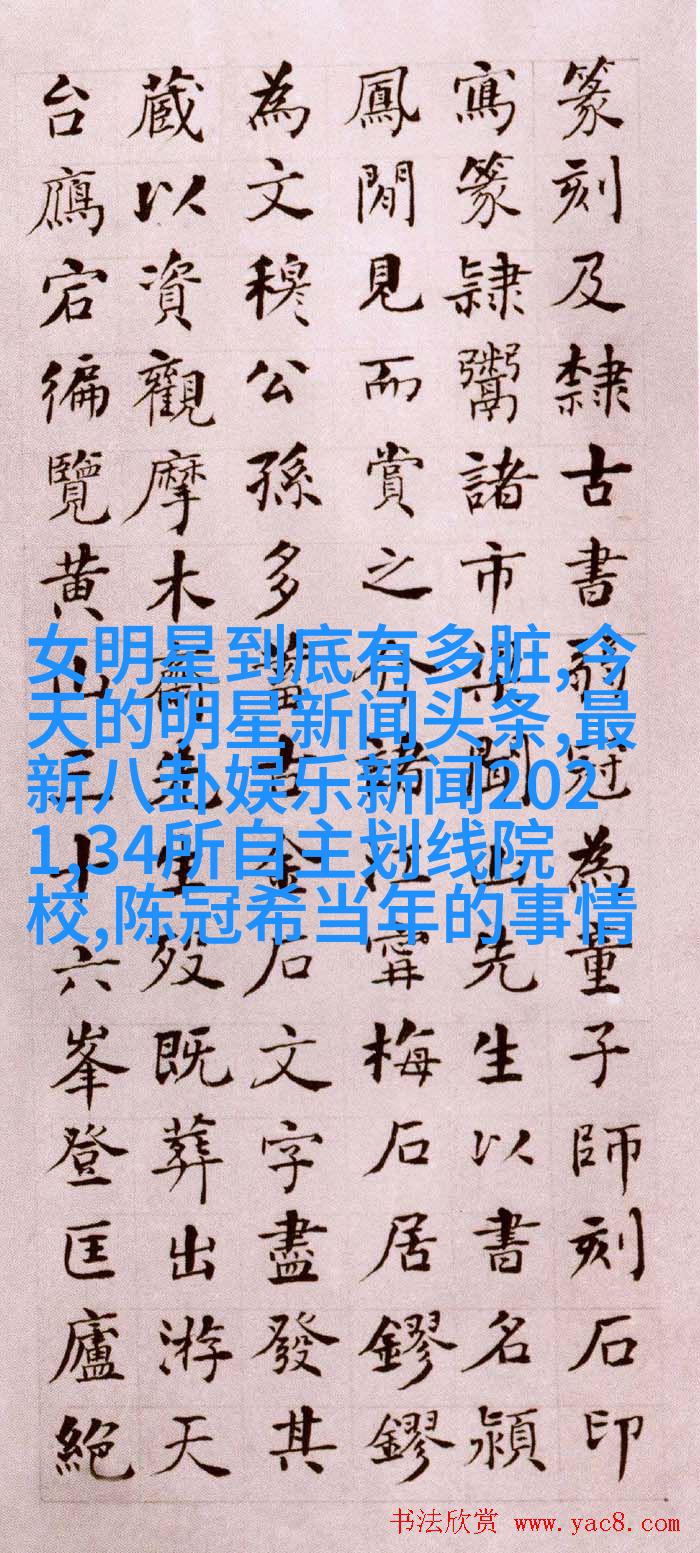 篆刻及隸古書弱冠為童子師刻石印
寫篆隸鬻諸市梁聞山先生以書名潁
鳳閒見而賞之介諸江寧梅石居鏐鏐
為文穆公孫多蓄吉金石文字盡發其
蔵以資觀摩木齋先生歿既葬出游天
台鴈宕徧覽黃山三十六峯登匡廬絕
女明星到底有多脏,今
天的明星新闻头条,最
新八卦娱乐新闻202
1,34所自主划线院
校,陈冠希当年的事情
书法欣赏 www.yac8.com